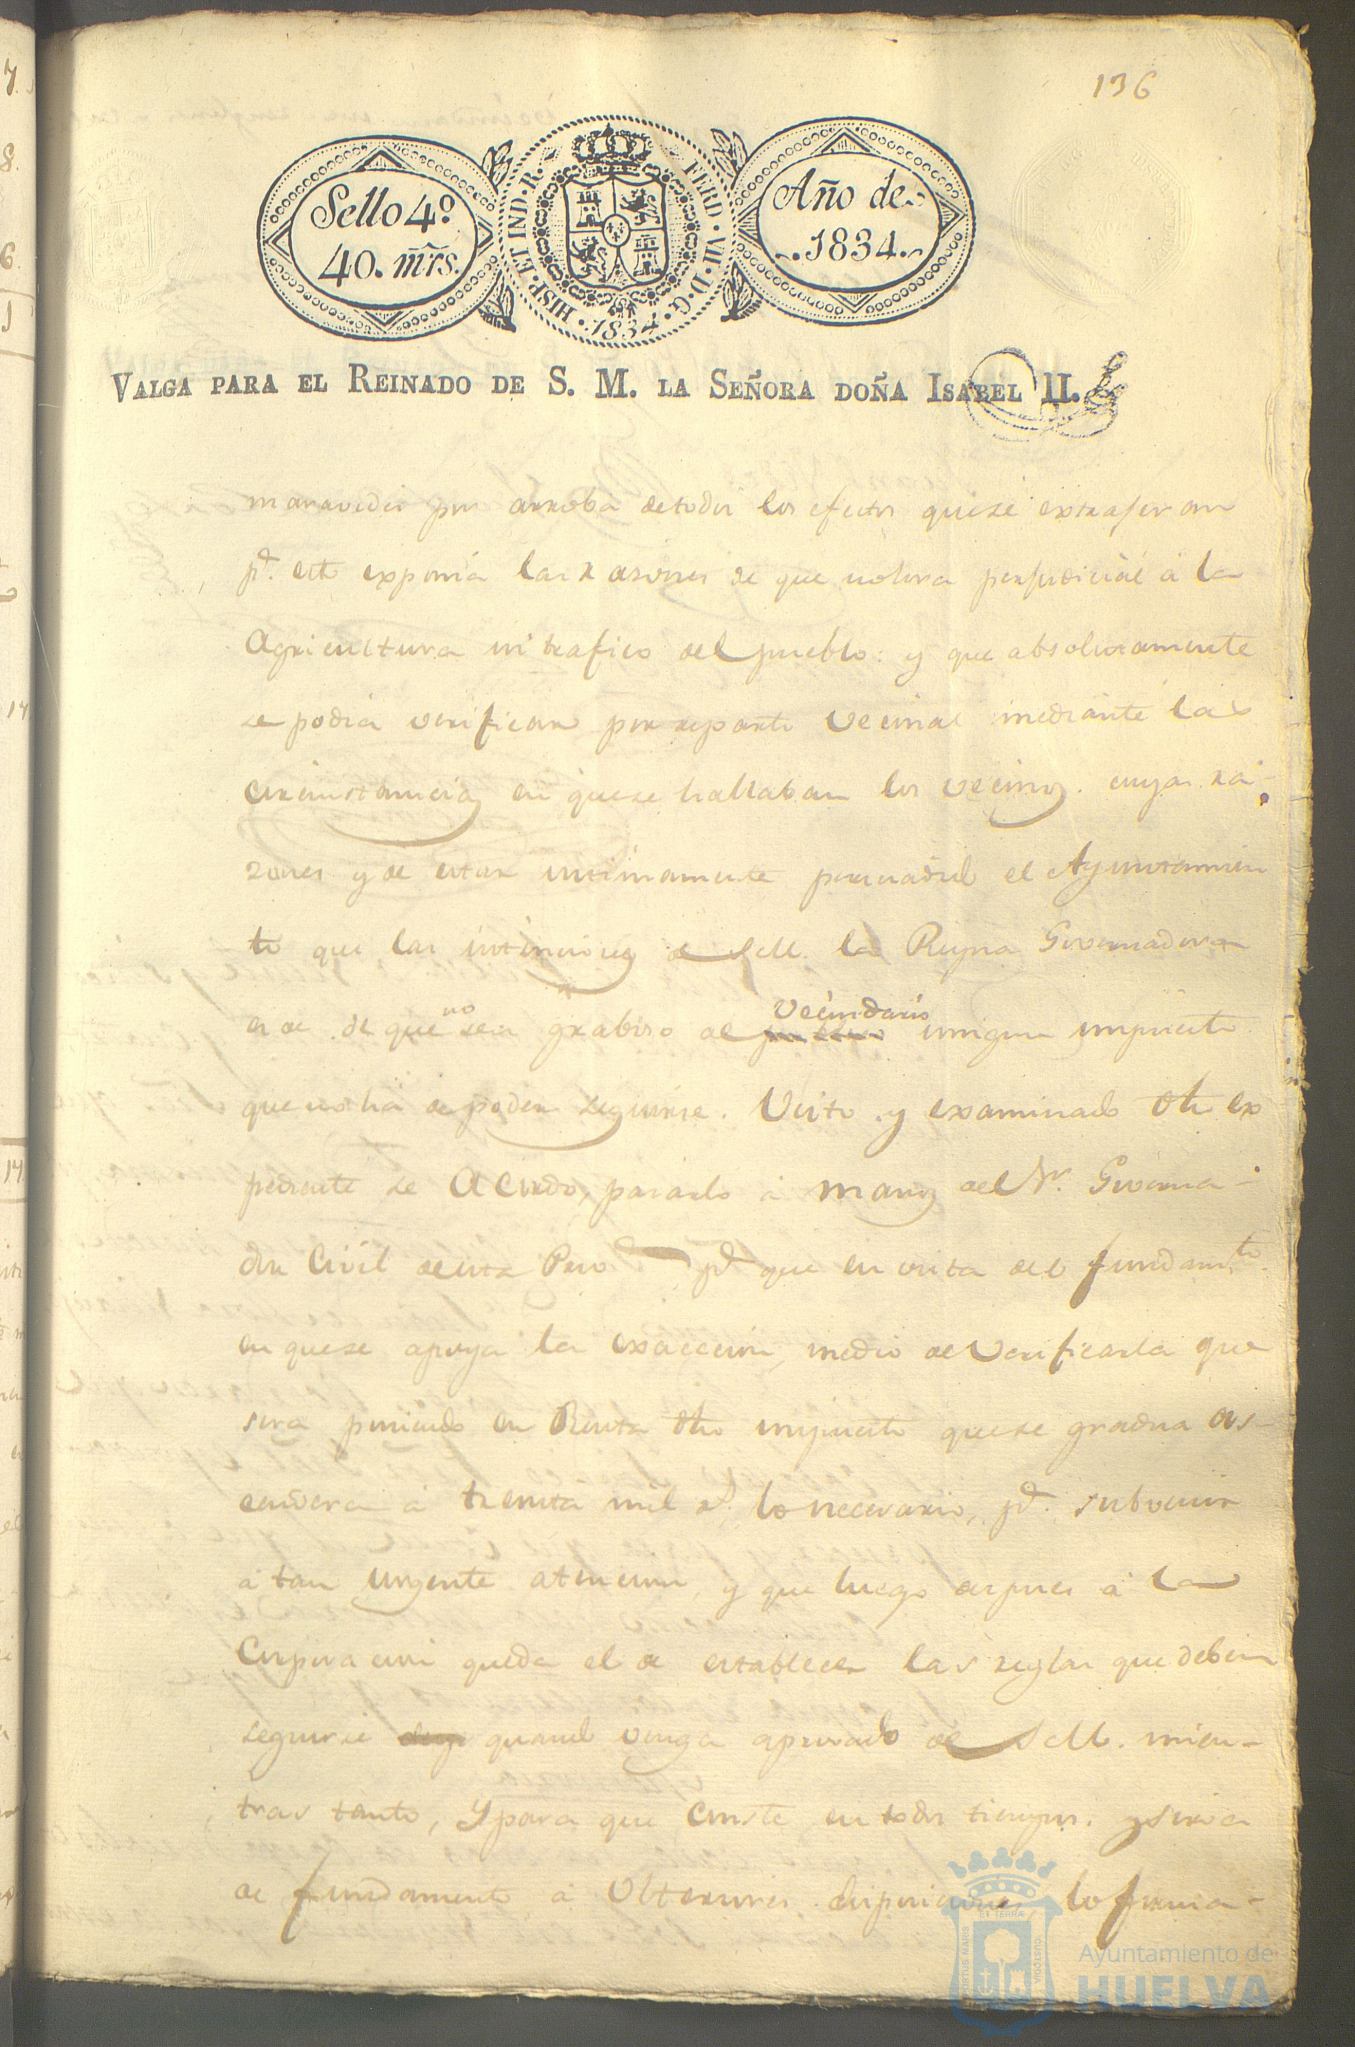 136
Sello 4º
40. mrs.
HISP. ET IND. R.
FERD. VII. D. G.
1834
Año de
1834.
VALGA PARA EL REINADO DE S. M. LA SEÑORA DOÑA ISABEL II.
maravedis por arroba detodos los efectos quese extrageran
pª. esto exponia las rasones de que nosera perjudicial á la
Agricultura ni trafico del pueblo: y que absolutamente
se podia verificar por reparto vecinal mediante las
circunstancias en quese hallaban los vecinos. cuyas ra-
zones y de estar intimamente persuadido el Ayuntamien
to que las intenciones de S. M. la Reyna Governadora
es de de que no sea graboso al vecindario ningun impuesto
que no ha de poder seguirse. Visto y examinado dho ex
pediente se Acordó, pasarlo á manos del Sr. Governa-
dor Civil de esta Prov pª que en vista de los fundamtos
en quese apoya la exaccion, medio de verificarla que
sera poniendo en Renta dho impuesto quese gradua as-
cendera á treinta mil rs. lo necesario, pª. subvenir
á tan urgente atencion, y que luego despues á la
Corporacion queda el de establecer las reglas que deben
seguirse quando venga aprovado de S. M. mien-
tras tanto, Y para que conste en todos tiempos. y sirva
de fundamento á Ulteriores disposiciones lo firma-
Ayuntamiento de
HUELVA